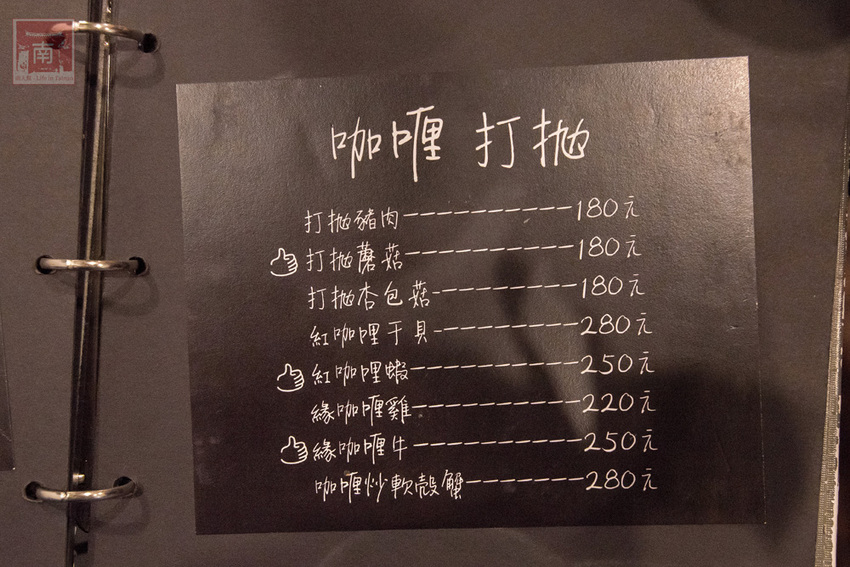 南
南人幫-Life in Tainan
咖喱 打拋
打拋豬肉----------180元
打拋蘑菇---------180元
打拋杏包菇--------180元
紅咖哩干貝--------280元
紅咖哩蝦---------250元
緣咖喱雞---------220元
緣咖喱牛---------250元
咖喱炒軟殼蟹-------280元